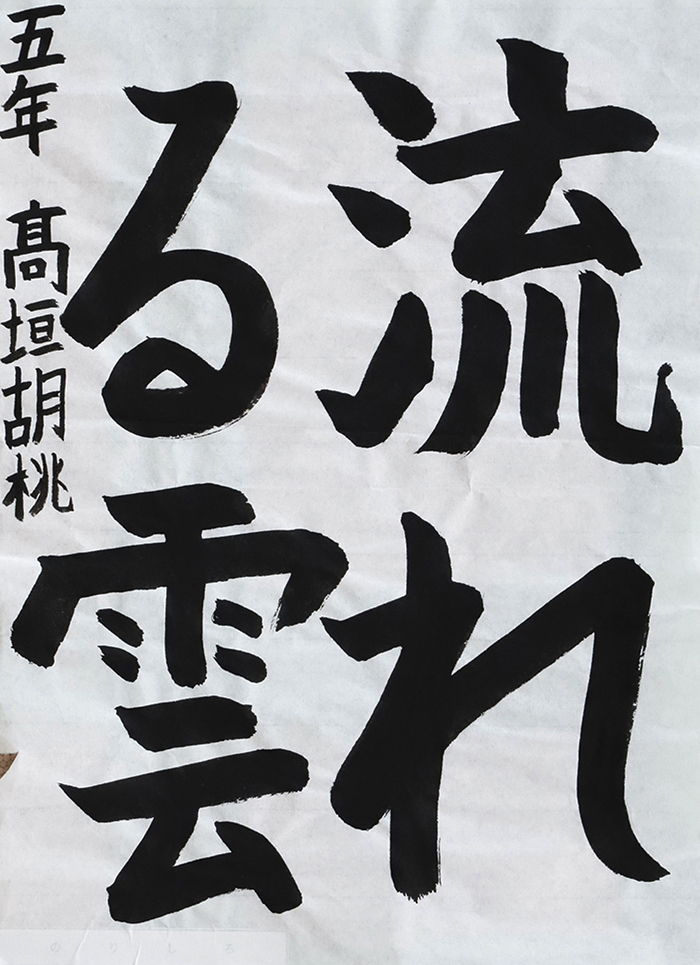 流れ
る雲
五年 髙垣胡桃
のりしろ